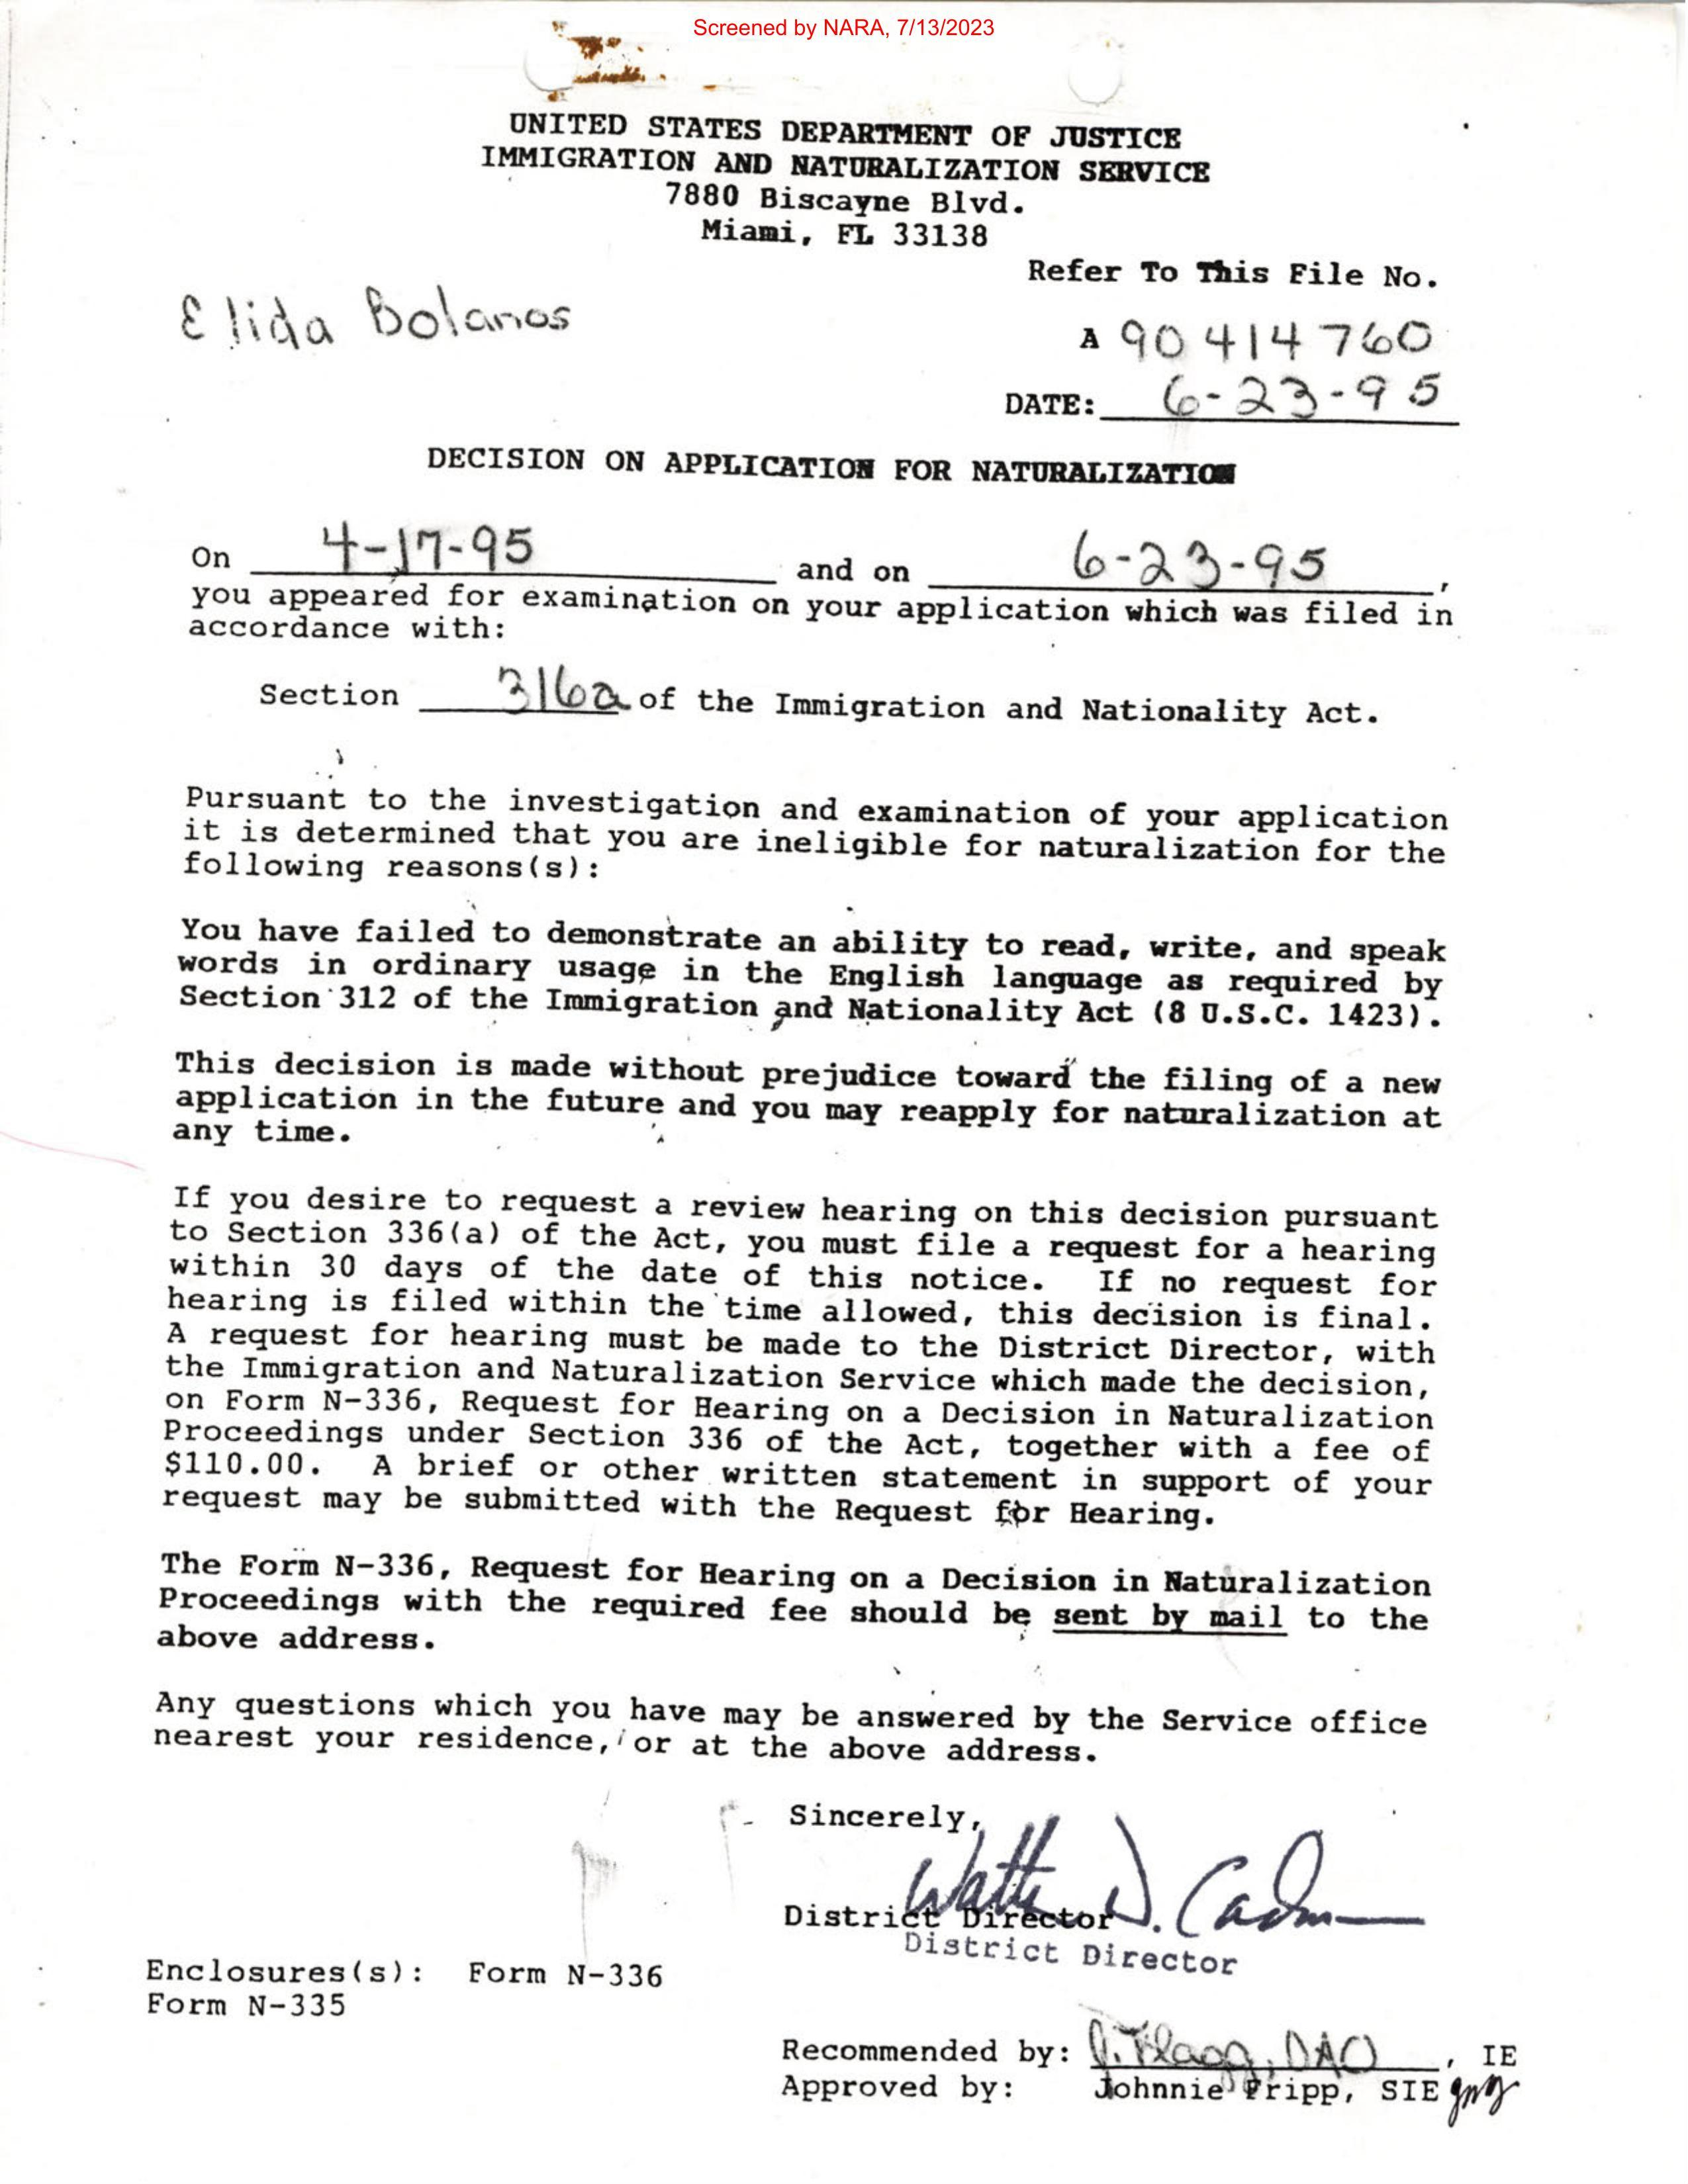 Screened by NARA, 7/13/2023
UNITED STATES DEPARTMENT OF JUSTICE
IMMIGRATION AND NATURALIZATION SERVICE
7880 Biscayne Blvd.
Miami, FL 33138
Refer To This File No.
Elida Bolanos
A 90 414 760
DATE: 6-23-95
DECISION ON APPLICATION FOR NATURALIZATION
On 4-17-95 and on 6-23-95,
you appeared for examination on your application which was filed in
accordance with:
Section 316a of the Immigration and Nationality Act.
Pursuant to the investigation and examination of your application
it is determined that you are ineligible for naturalization for the
following reasons(s):
You have failed to demonstrate an ability to read, write, and speak
words in ordinary usage in the English language as required by
Section 312 of the Immigration and Nationality Act (8 U.S.C. 1423).
This decision is made without prejudice toward the filing of a new
application in the future and you may reapply for naturalization at
any time.
If you desire to request a review hearing on this decision pursuant
to Section 336(a) of the Act, you must file a request for a hearing
within 30 days of the date of this notice. If no request for
hearing is filed within the time allowed, this decision is final.
A request for hearing must be made to the District Director, with
the Immigration and Naturalization Service which made the decision,
on Form N-336, Request for Hearing on a Decision in Naturalization
Proceedings under Section 336 of the Act, together with a fee of
$110.00. A brief or other written statement in support of your
request may be submitted with the Request for Hearing.
The Form N-336, Request for Hearing on a Decision in Naturalization
Proceedings with the required fee should be sent by mail to the
above address.
Any questions which you have may be answered by the Service office
nearest your residence, or at the above address.
Sincerely,
Walter D. Cadman
District Director
District Director
Enclosures(s): Form N-336
Form N-335
Recommended by: J. Flagg, DAO, IE
Approved by: Johnnie Fripp, SIE